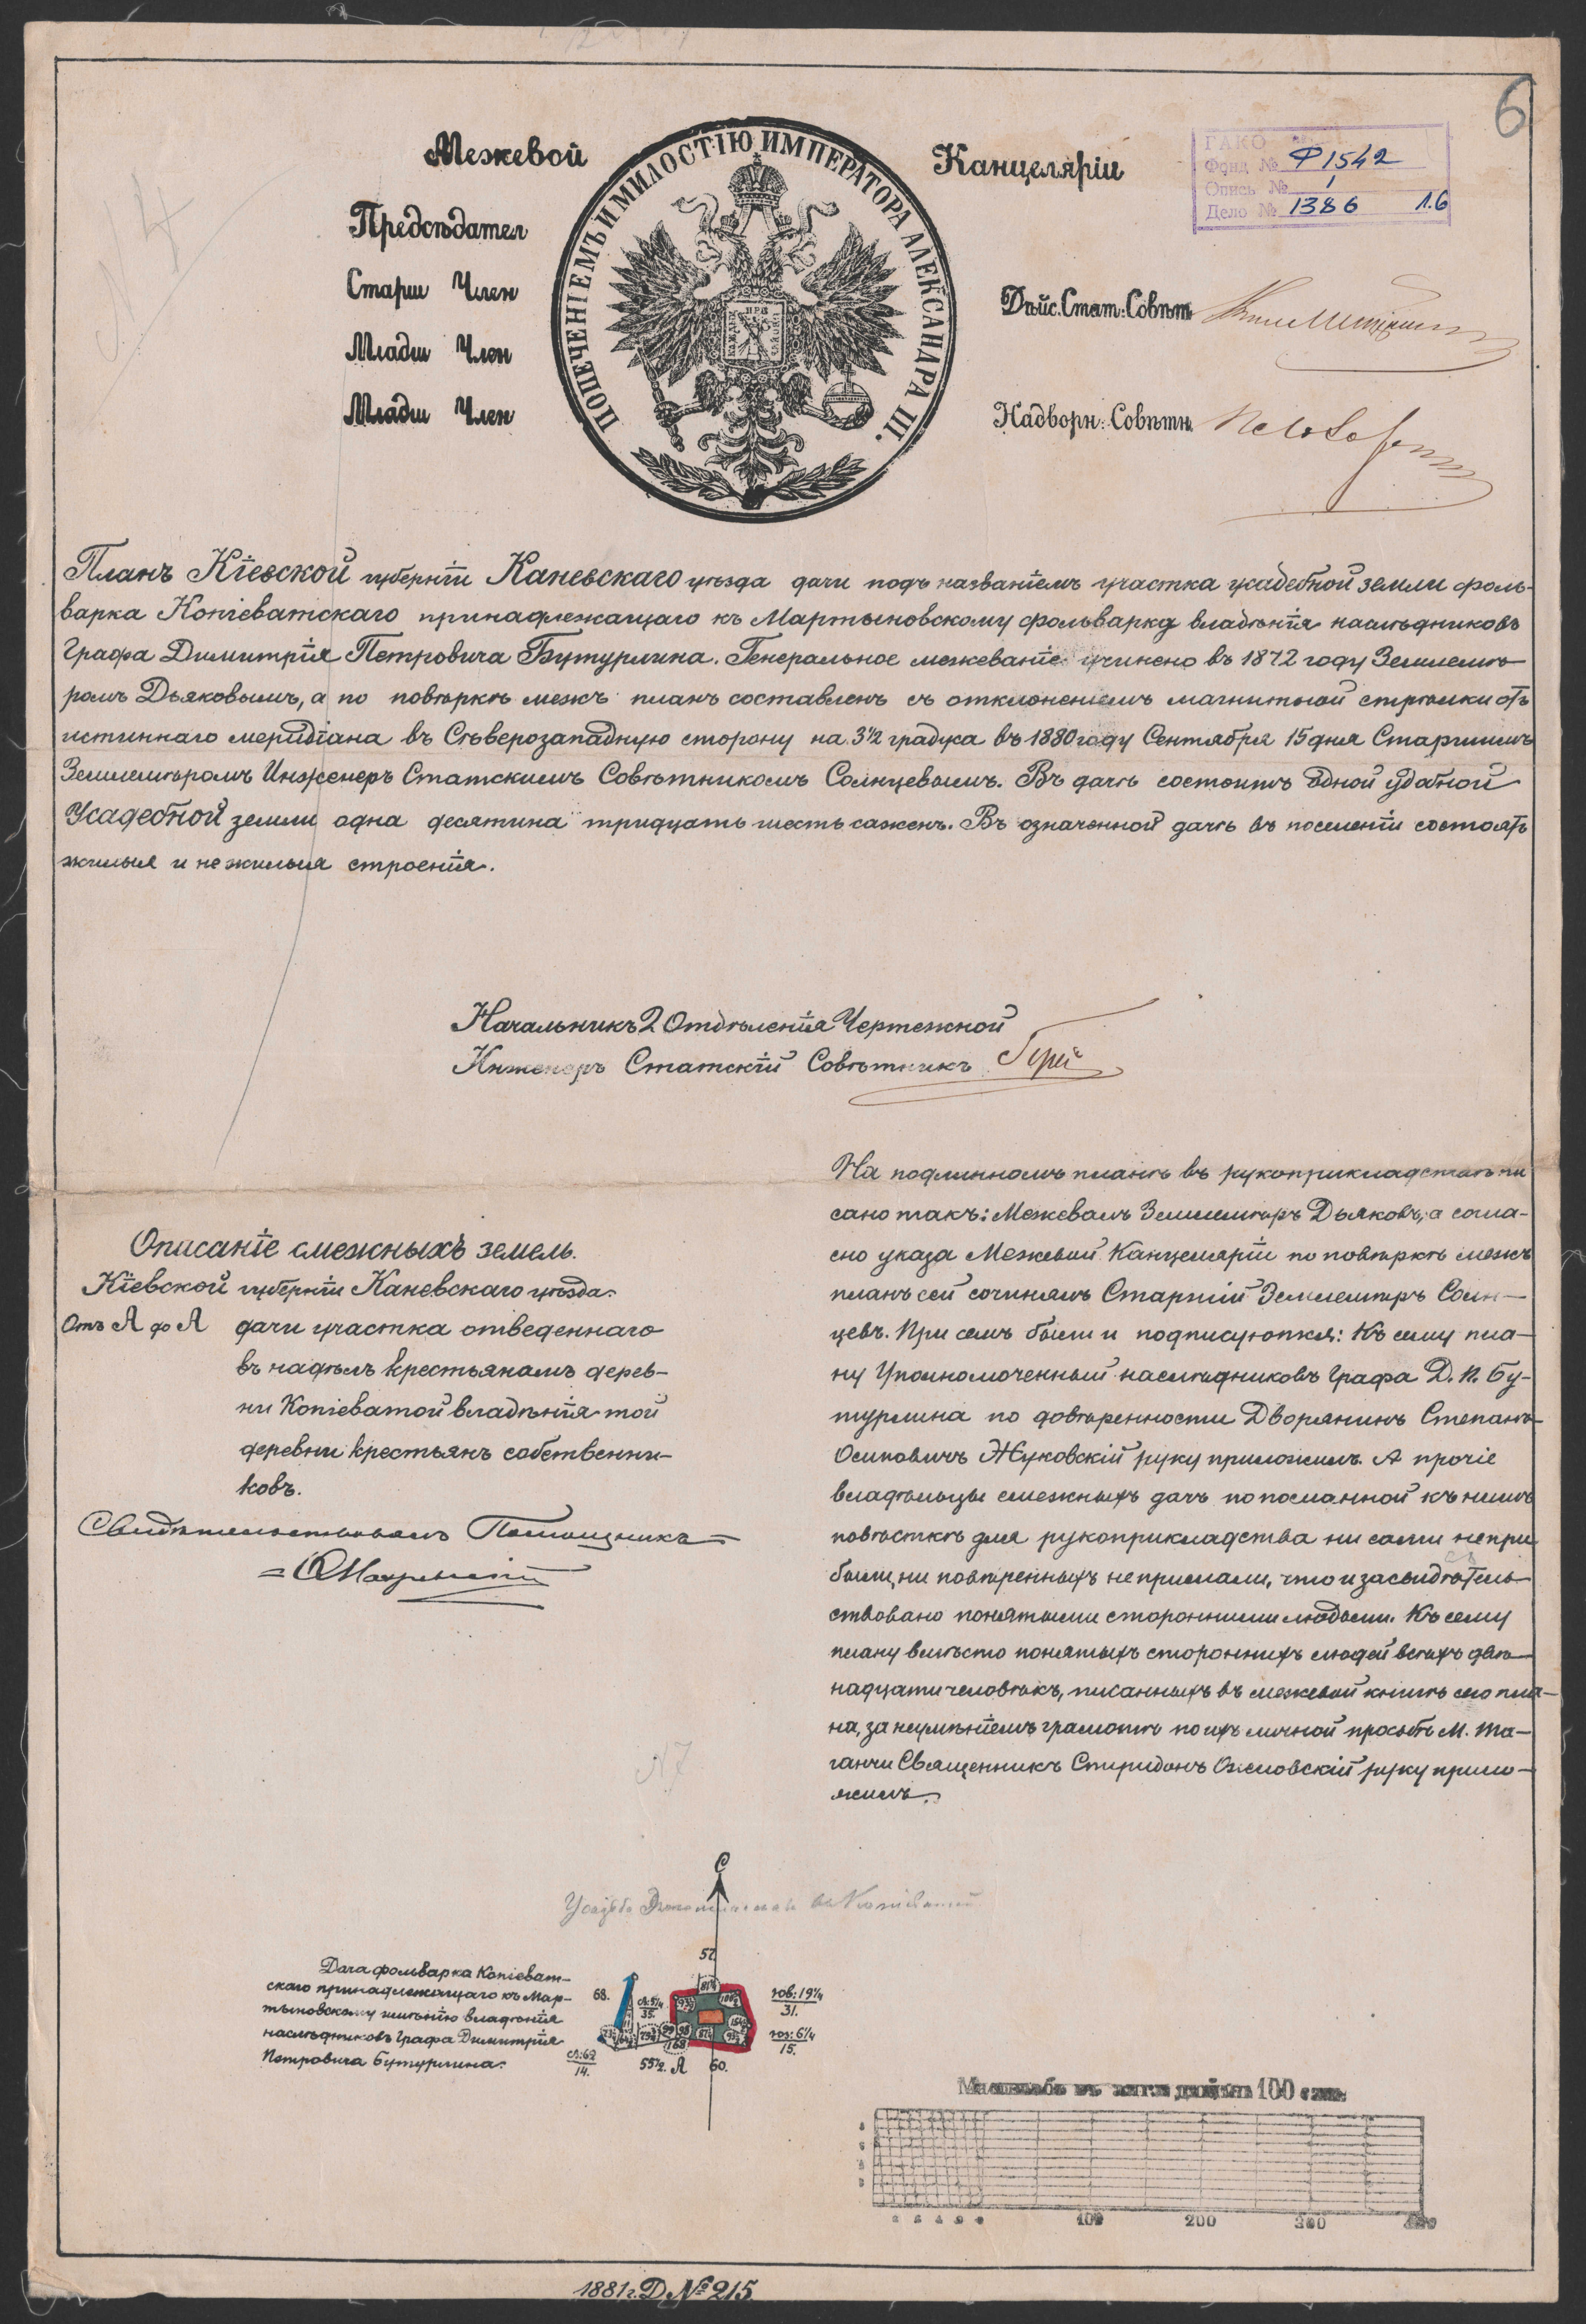 6
Межевой
Канцеляріи
ПОПЕЧЕНІЕМЪ И МИЛОСТІЮ ИМПЕРАТОРА АЛЕКСАНДРА III.
ГАКО
Фонд № Ф 1542
Опись № 1
Дело № 1386 л.6
Предсѣдател
Старш Член
Младш Член
Младш Член
Дѣйс. Стат: Совѣтн
Надворн: Совѣтн.
Планъ Кіевской губерніи Каневскаго уѣзда дачи подъ названіемъ участка усадебной земли фоль-
варка Копіеватскаго принадлежащаго къ Мартыновскому фольварку владѣнія наслѣдниковъ
Графа Димитрія Петровича Бутурлина. Генеральное межеваніе учинено въ 1872 году Землемѣ-
ромъ Дьяковымъ, а по повѣркѣ межъ планъ составленъ съ отклоненіемъ магнитной стрѣлки отъ
истиннаго меридіана въ Сѣверозападную сторону на 3½ градуса въ 1880 году Сентября 15 дня Старшимъ
Землемѣромъ Инженеръ Статскимъ Совѣтникомъ Солнцевымъ. Въ дачѣ состоитъ одной удобной
Усадебной земли одна десятина тридцать шесть сажень. Въ означенной дачѣ въ поселеніи состоятъ
жилыя и нежилыя строенія.
Начальникъ 2 Отдѣленія Чертежной
Инженеръ Статскій Совѣтникъ
Описаніе смежныхъ земель.
Кіевской губерніи Каневскаго уѣзда.
Отъ А до А дачи участка отведеннаго
въ надѣлъ крестьянамъ дерев-
ни Копіеватой владѣнія той
деревни крестьянъ собственни-
ковъ.
Свидѣтельствовалъ Помощникъ
На подлинномъ планѣ въ рукоприкладствѣ пи
сано такъ: Межевалъ Землемѣръ Дьяковъ, а согла-
сно указа Межевой Канцеляріи по повѣркѣ межъ
планъ сей сочинялъ Старшій Землемѣръ Солн-
цевъ. При семъ были и подписуются: Къ сему пла-
ну Уполномоченный наслѣдниковъ Графа Д. П. Бу-
турлина по довѣренности Дворянинъ Степанъ
Осиповичъ Жуковскій руку приложилъ. А прочіе
владѣльцы смежныхъ дачъ по посланной къ нимъ
повѣсткѣ для рукоприкладства ни сами не при
были, ни повѣренныхъ не прислали, что и засвидѣтель-
ствовано понятыми сторонними людьми. Къ сему
плану вмѣсто понятыхъ стороннихъ людей всѣхъ двѣ-
надцати человѣкъ, писанныхъ въ межевой книгѣ сего пла-
на, за неумѣніемъ грамотѣ по ихъ личной просьбѣ М. Та-
ганчи Священникъ Спиридонъ руку прило-
жилъ.
N 7
С
Усадьба
Дача фольварка Копіеват-
скаго принадлежащаго къ Мар-
тыновскому имѣнію владѣнія
наслѣдниковъ Графа Димитрія
Петровича Бутурлина.
57.
68.
юв: 19¼
31.
юз: 6¼
15.
55½. А 60.
14.
Масштабъ въ англ. дюймѣ 100 саж.
100 200 300 400
1881 г. Д. № 215